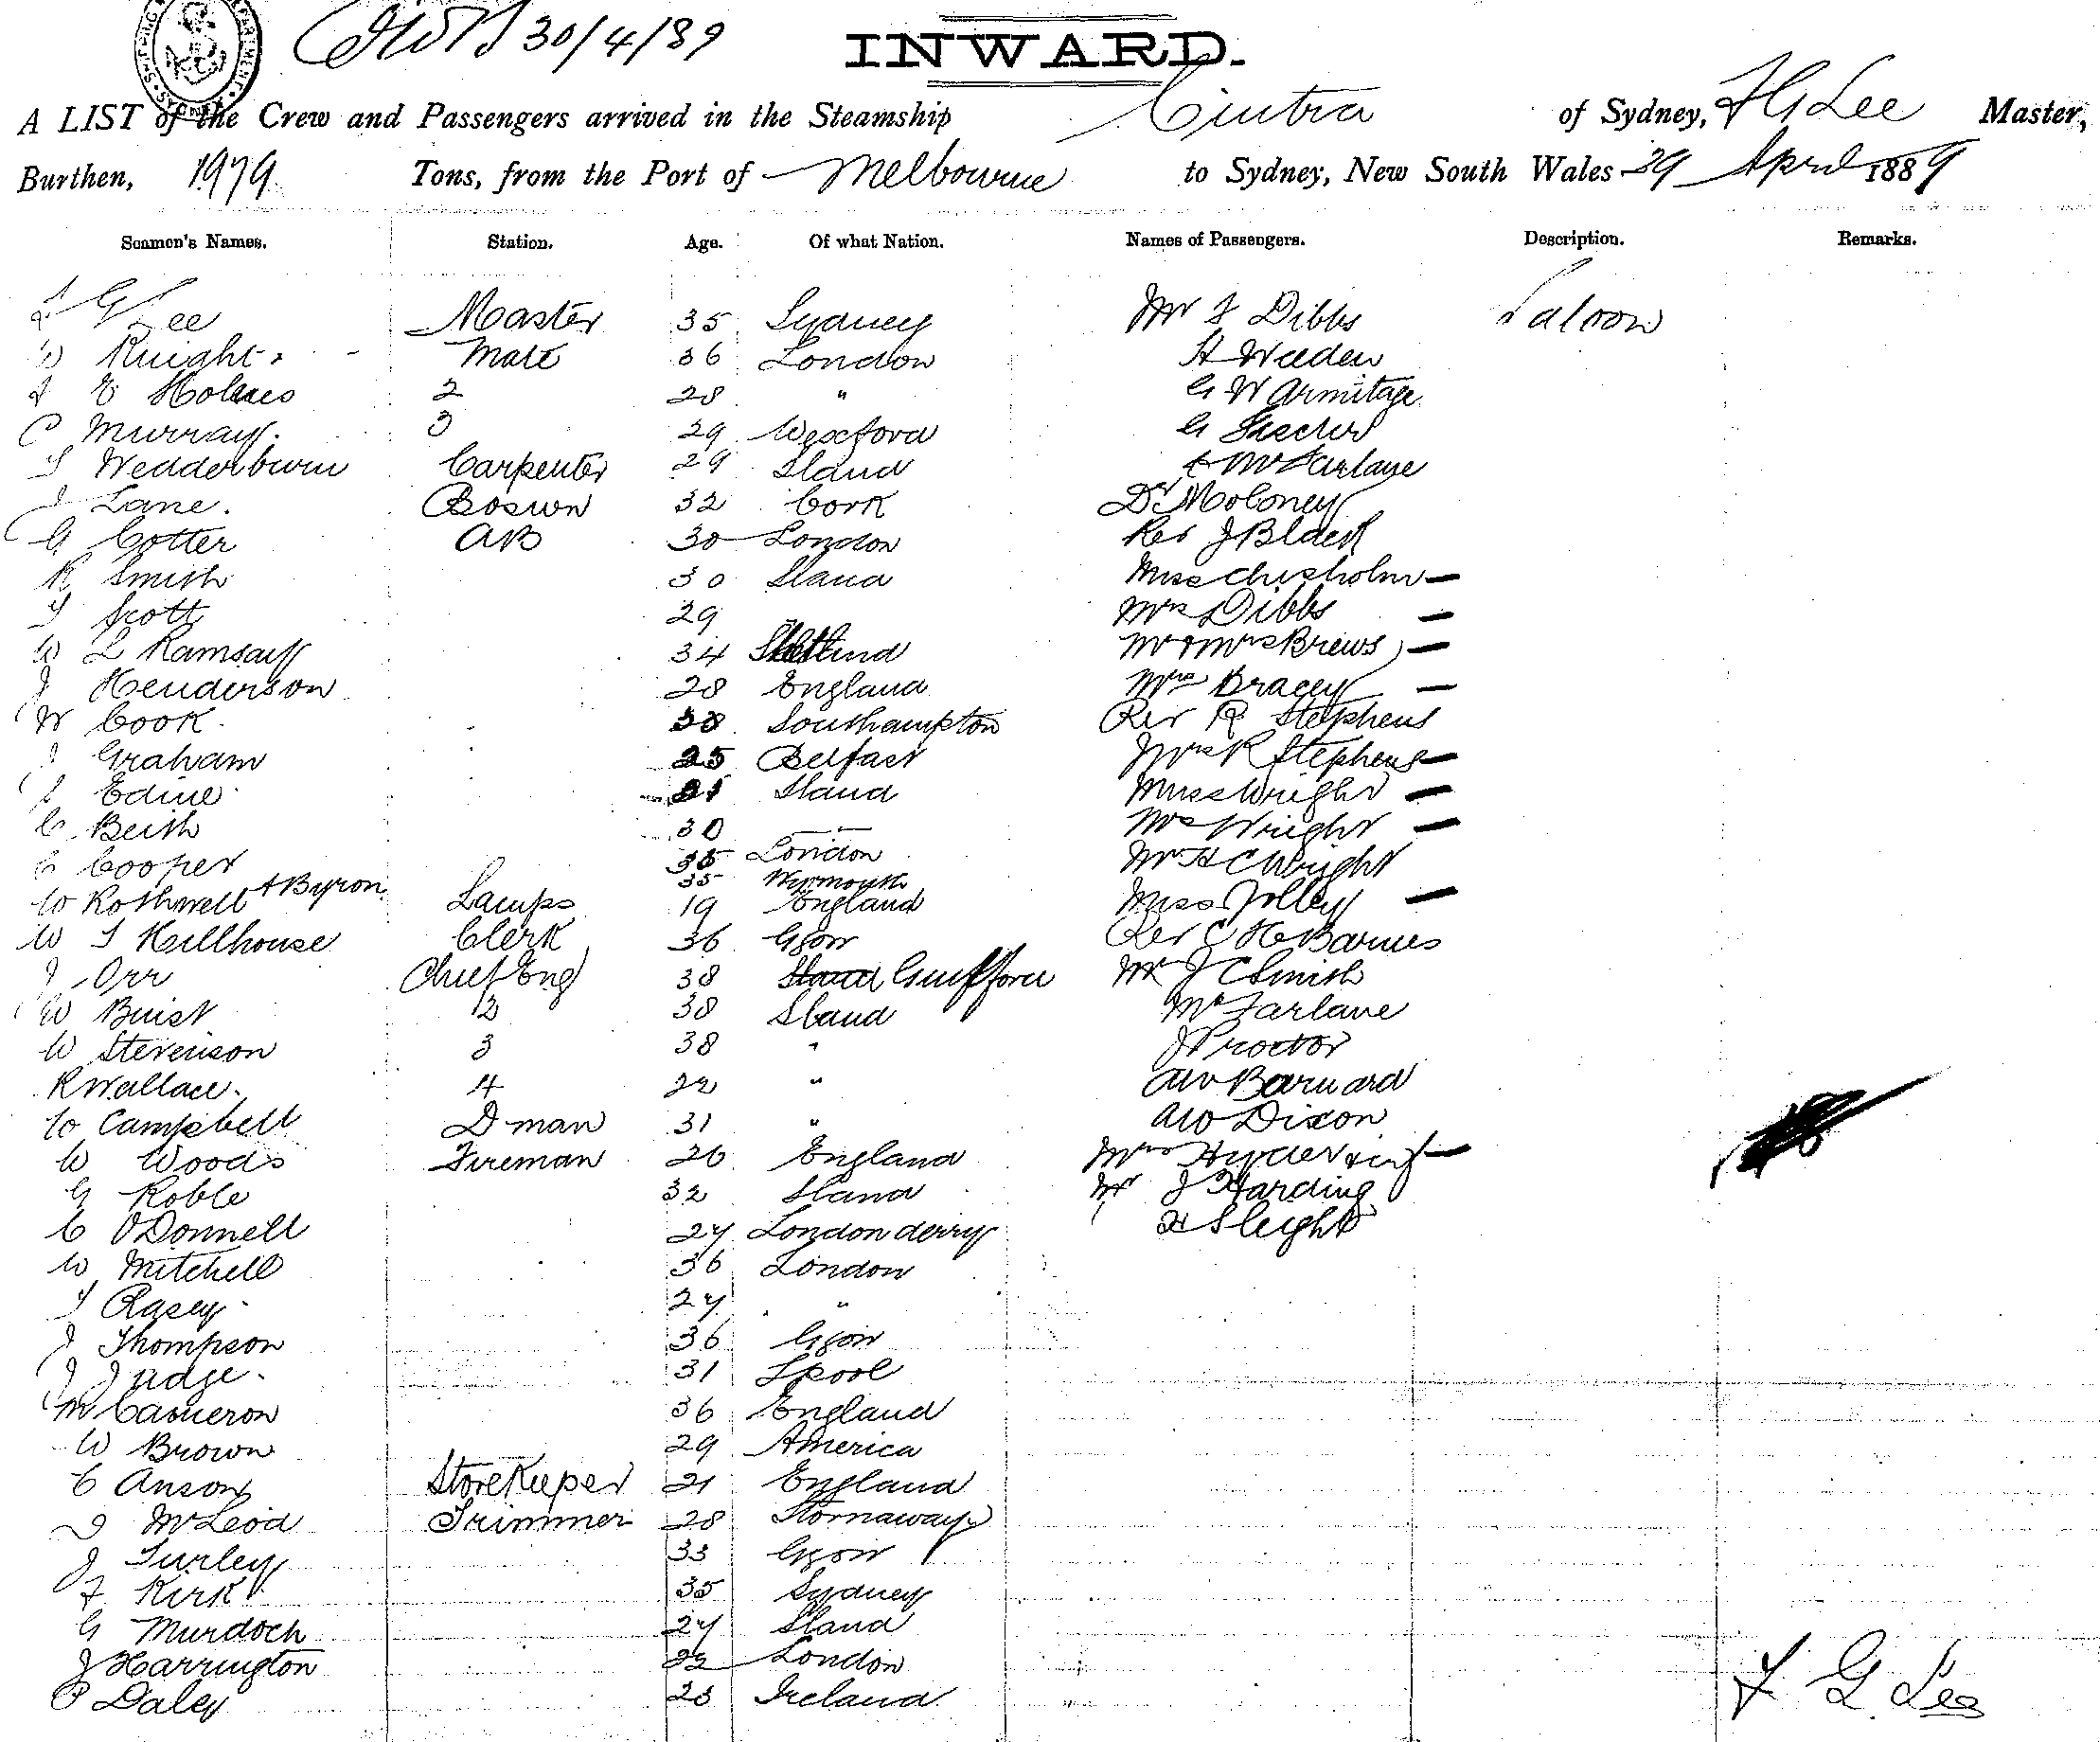 30/4/89
INWARD.
A LIST of the Crew and Passengers arrived in the Steamship Cintra of Sydney, F G Lee Master,
Burthen, 1979 Tons, from the Port of Melbourne to Sydney, New South Wales 29 April 1889
Seamen's Names. Station. Age. Of what Nation. Names of Passengers. Description. Remarks.
F G Lee Master 35 Sydney Mr F Dibbs Saloon
W Knight Mate 36 London H Weeden
E Holmes 2 28 " G W Armitage
C Murray 3 29 Wexford G
T Wedderburn Carpenter 29 Sland McFarlane
J Lane. Boswn 32 Cork Dr Moloney
G Cotter AB 30 London Rev J Black
R Smith 30 Sland Miss Chisholm —
T Scott 29 Mrs Dibbs —
W L Ramsay 34 Mr & Mrs Brews —
J Henderson 28 England Mrs Bracey —
W Cook 38 Southampton Rev R Stephens
J Graham 25 Belfast Mrs R Stephens —
Edine 21 Sland Miss Wright —
C Beith 30 Mrs Wright —
C Cooper 35 London Mr H C Wright
A Byron 35 Weymouth
W Rothwell Lamps 19 England Miss Jolley —
W T Hillhouse Clerk 36 Ggow Rev C H Barnes
J Orr Chief Eng 38 Mr J C Smith
W Buist 2 38 Sland McFarlane
W Stevenson 3 38 " J Proctor
R Wallace. 4 22 " AW Barnard
W Campbell D-man 31 " AW Dixon
W Woods Fireman 26 England Mrs
G Roble 32 Sland Mr J Harding
C O'Donnell 27 Londonderry H Sleight
W Mitchell 36 London
T Casey 27 "
J Thompson 36 Ggow
J Judge. 31 Lpool
M Cameron 36 England
W Brown 29 America
C Anson Storekeeper 21 England
D McLeod Trimmer 28 Stornaway
J Turley 33 Ggow
F Kirk 35 Sydney
G Murdoch 27 Sland
J Harrington 22 London
P Daley 23 Ireland
F G Lee